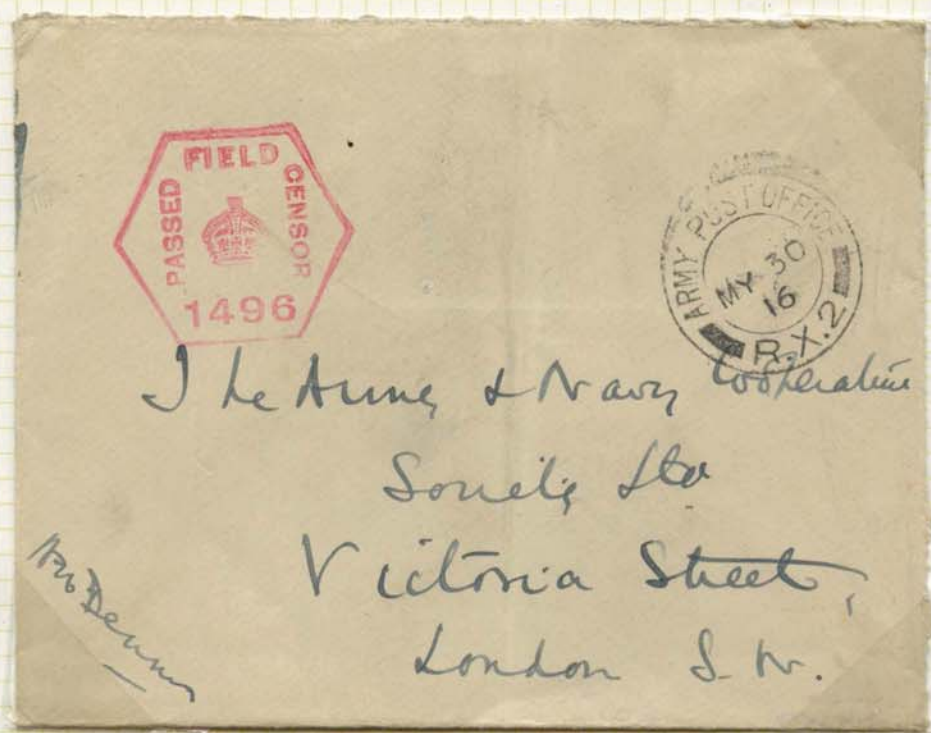 PASSED FIELD CENSOR
1496
ARMY POST OFFICE
MY 30
16
R.X.2
The Army & Navy Cooperative
Society Ltd
Victoria Street,
London S.W.
Dennis